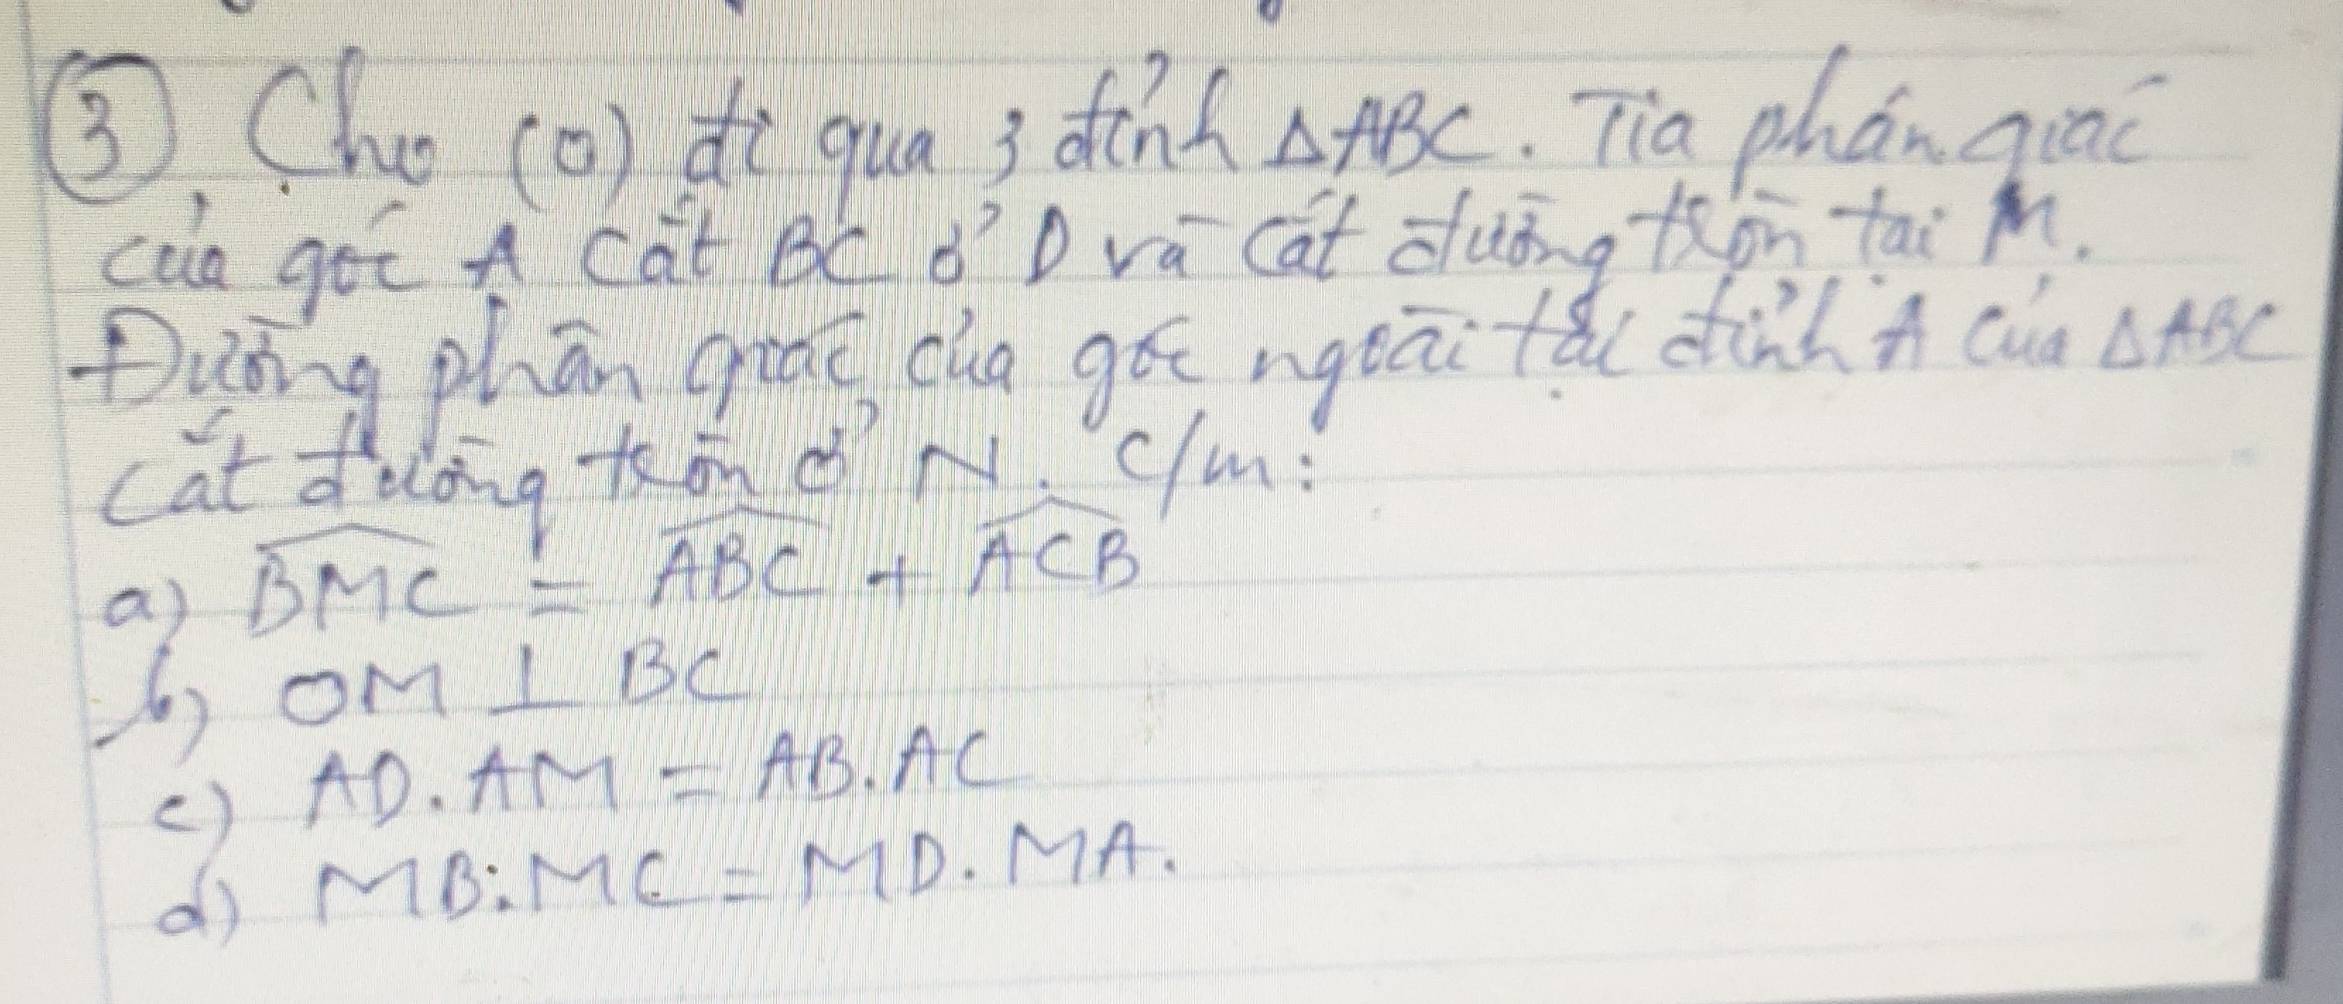 ③, Cho (O) đi qua 3 đỉnh ΔABC. Tia phân giác
của góc A cắt BC ở D và cắt đường tròn tại M.
Đường phân giác của góc ngoài tại đỉnh A của ΔABC
cắt đường tròn ở N. C/m:
a) \widehat{BMC} = \widehat{ABC} + \widehat{ACB}
b) OM ⊥ BC
c) AD.AM = AB.AC
d) MB.MC = MD.MA.